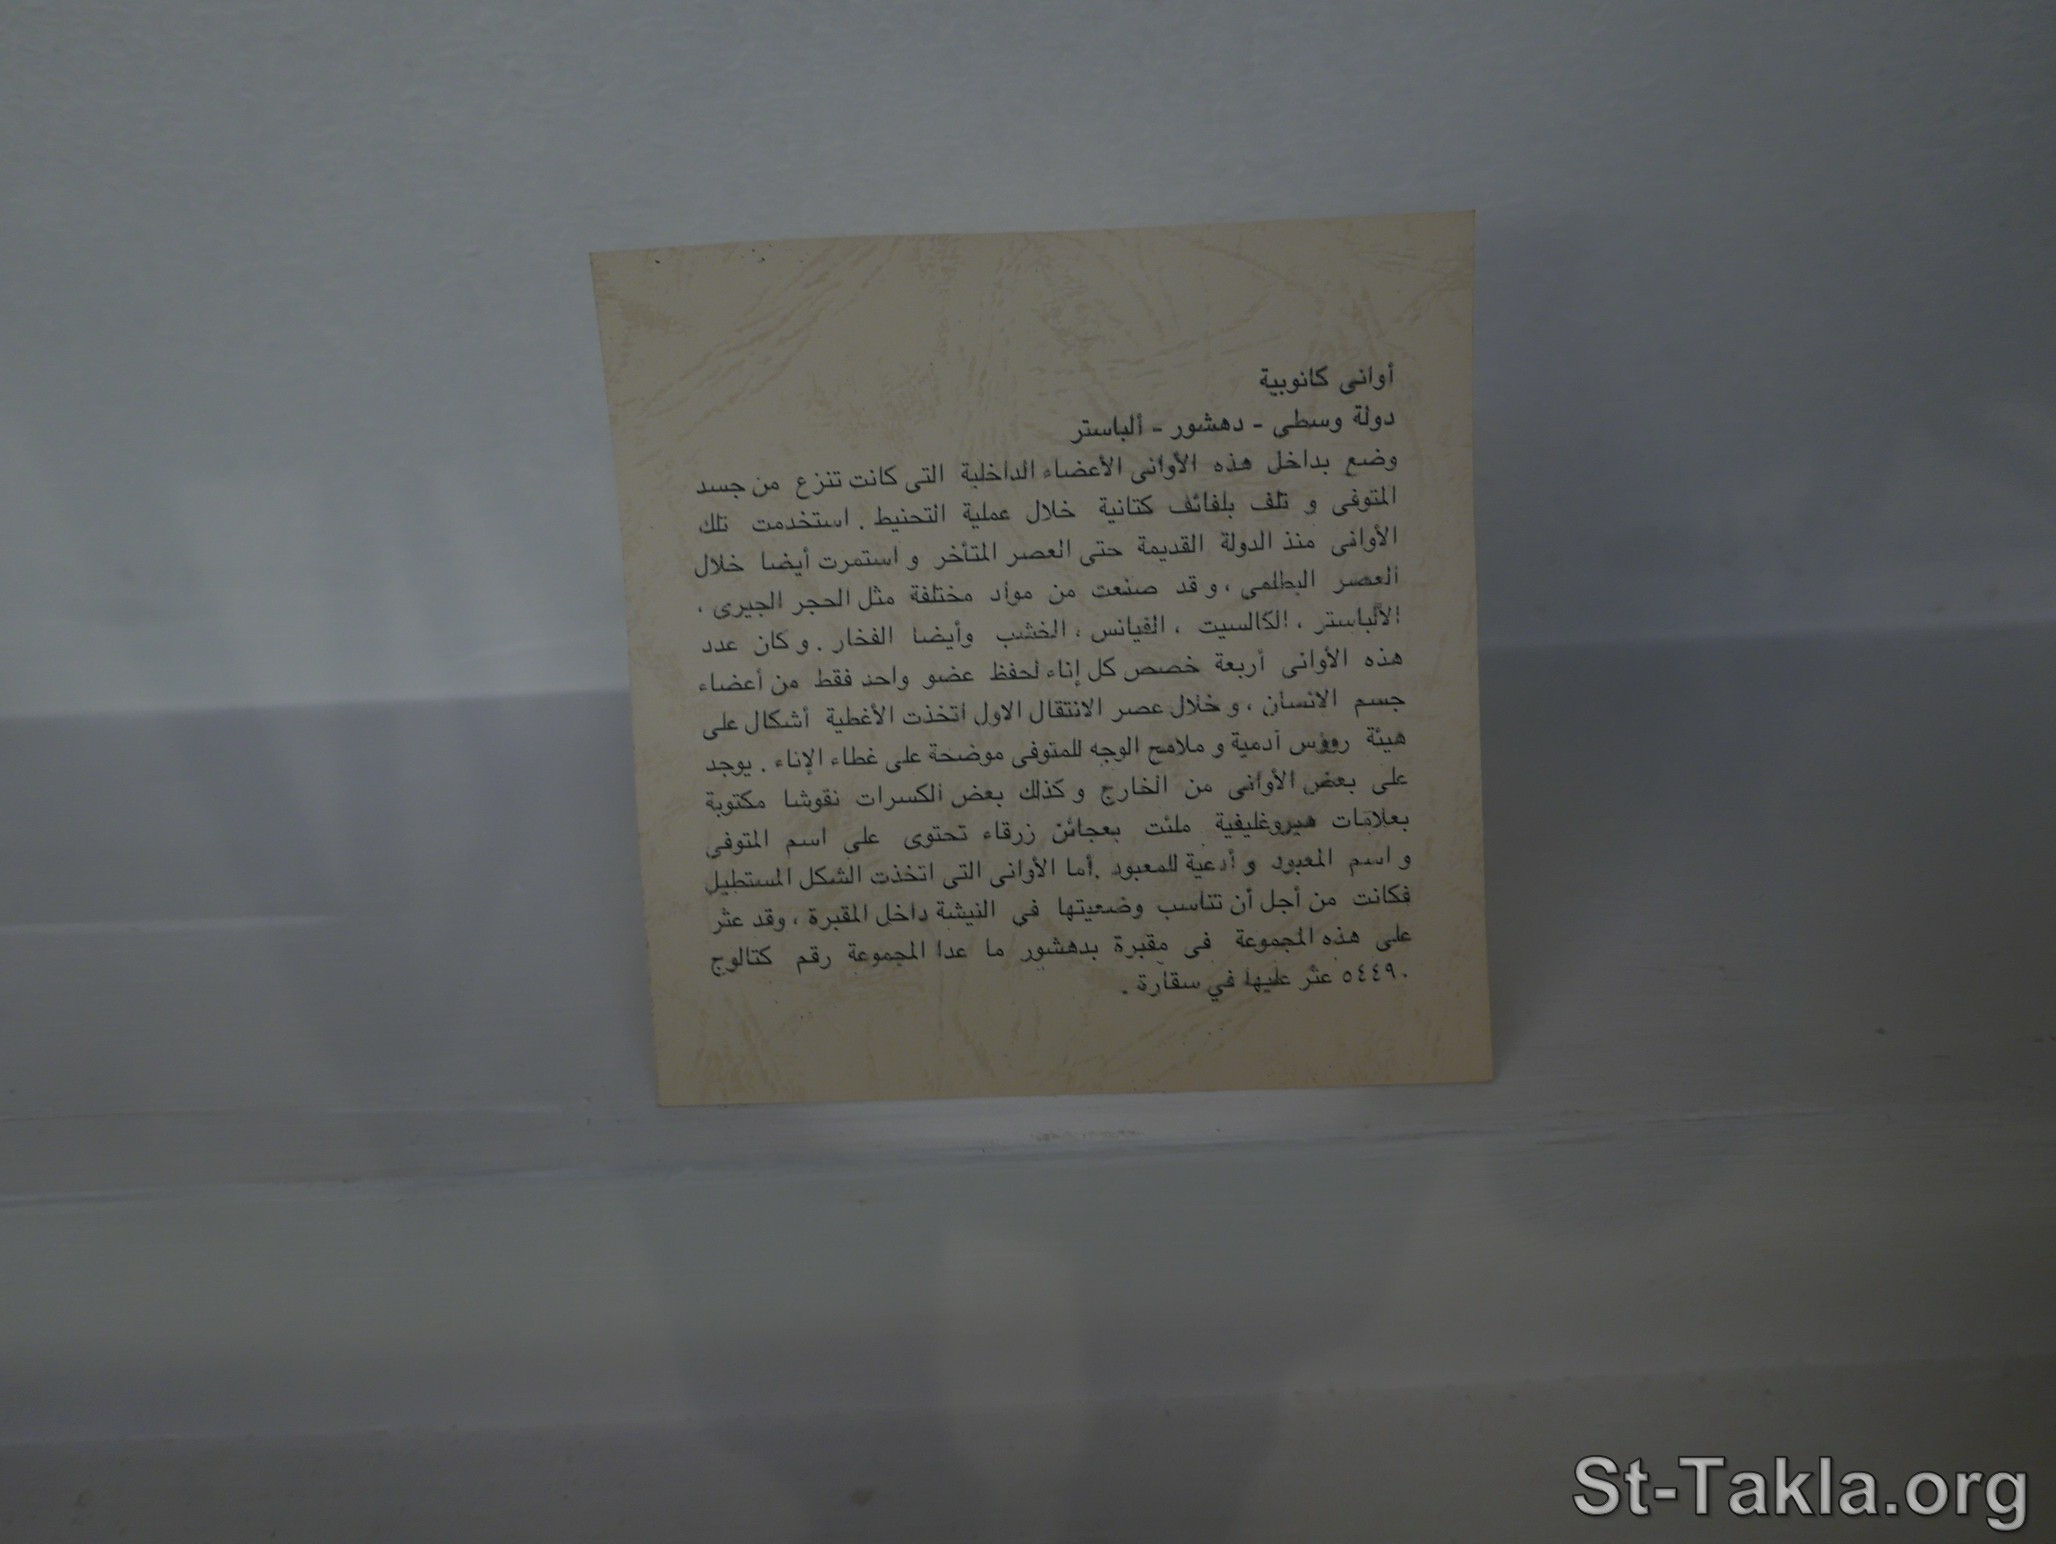 أوانى كانوبية
دولة وسطى - دهشور - ألباستر
وضع بداخل هذه الأوانى الأعضاء الداخلية التى كانت تنزع من جسد
المتوفى و تلف بلفائف كتانية خلال عملية التحنيط . استخدمت تلك
الأوانى منذ الدولة القديمة حتى العصر المتأخر و استمرت أيضا خلال
العصر البطلمى ، و قد صنعت من مواد مختلفة مثل الحجر الجيرى ،
الألباستر ، الكالسيت ، الفيانس ، الخشب وأيضا الفخار . و كان عدد
هذه الأوانى أربعة خصص كل إناء لحفظ عضو واحد فقط من أعضاء
جسم الانسان ، و خلال عصر الانتقال الاول اتخذت الأغطية أشكال على
هيئة رؤس آدمية و ملامح الوجه للمتوفى موضحة على غطاء الإناء . يوجد
على بعض الأوانى من الخارج و كذلك بعض الكسرات نقوشا مكتوبة
بعلامات هيروغليفية ملئت بعجائن زرقاء تحتوى على اسم المتوفى
و اسم المعبود و أدعية للمعبود .أما الأوانى التى اتخذت الشكل المستطيل
فكانت من أجل أن تناسب وضعيتها في النيشة داخل المقبرة ، وقد عثر
على هذه المجموعة فى مقبرة بدهشور ما عدا المجموعة رقم كتالوج
٥٤٤٩٠ عثر عليها في سقارة .
St-Takla.org